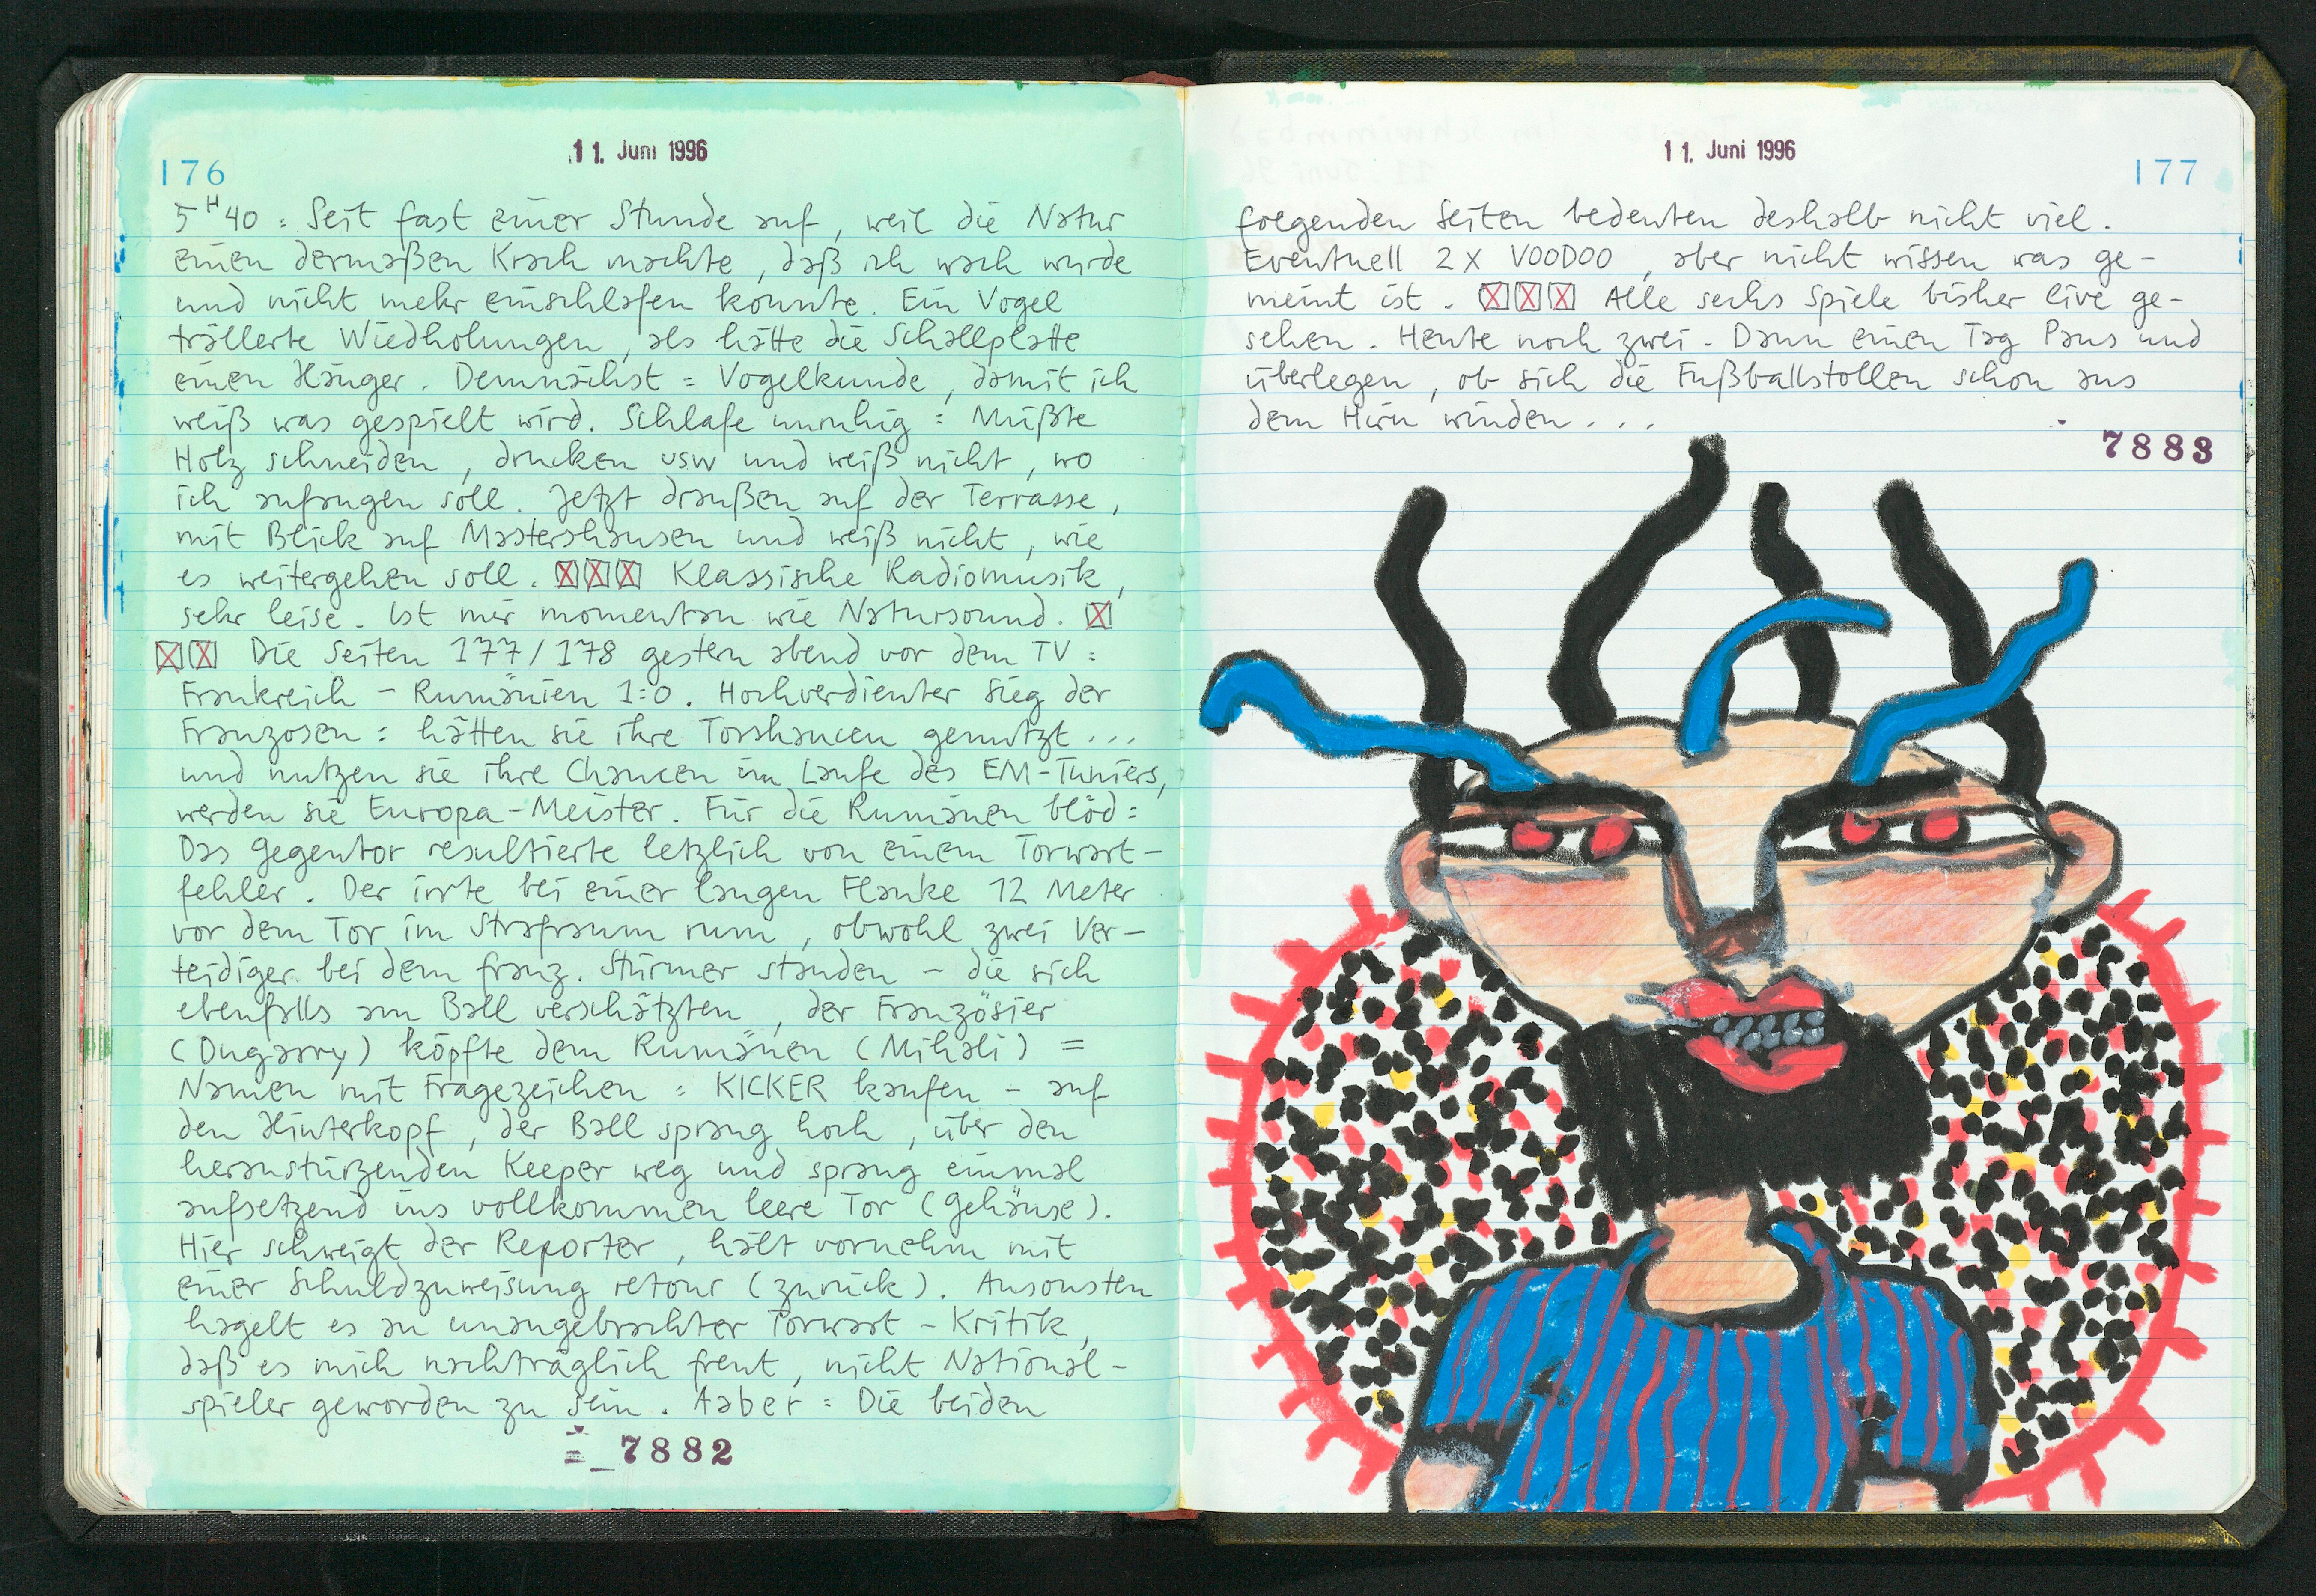 11. Juni 1996
176
5 H 40 : Seit fast einer Stunde auf, weil die Natur
einen dermaßen Krach machte, daß ich wach wurde
und nicht mehr einschlafen konnte. Ein Vogel
trällerte Wiedholungen, als hätte die Schallplatte
einen Hänger. Demnächst = Vogelkunde, damit ich
weiß was gespielt wird. Schlafe unruhig : Müßte
Holz schneiden, drucken usw und weiß nicht, wo
ich anfangen soll. Jetzt draußen auf der Terrasse,
mit Blick auf Mastershausen und weiß nicht, wie
es weitergehen soll. ☒☒☒ Klassische Radiomusik,
sehr leise. Ist mir momentan wie Natursound. ☒
☒☒ Die Seiten 177/178 gestern abend vor dem TV :
Frankreich - Rumänien 1:0. Hochverdienter Sieg der
Franzosen : hätten sie ihre Torchancen genutzt ...
und nutzen sie ihre Chancen im Laufe des EM-Tuniers,
werden sie Europa-Meister. Für die Rumänen blöd :
Das Gegentor resultierte letzlich von einem Torwart-
fehler. Der irrte bei einer langen Flanke 12 Meter
vor dem Tor im Strafraum rum, obwohl zwei Ver-
teidiger bei dem franz. Stürmer standen - die sich
ebenfalls am Ball verschätzten, der Französier
(Dugarry) köpfte dem Rumänen (Mihali) =
Namen mit Fragezeichen : KICKER kaufen - auf
den Hinterkopf, der Ball sprang hoch, über den
heranstürzenden Keeper weg und sprang einmal
aufsetzend ins vollkommen leere Tor (Gehäuse).
Hier schweigt der Reporter, hält vornehm mit
einer Schuldzuweisung retour (zurück). Ansonsten
hagelt es an unangebrachter Torwart-Kritik,
daß es mich nachträglich freut, nicht National-
spieler geworden zu sein. Aaber : Die beiden
7882
11. Juni 1996
177
folgenden Seiten bedeuten deshalb nicht viel.
Eventuell 2 x VOODOO, aber nicht wissen was ge-
meint ist. ☒☒☒ Alle sechs Spiele bisher live ge-
sehen. Heute noch zwei. Dann einen Tag Paus und
überlegen, ob sich die Fußballstollen schon aus
dem Hirn winden ...
7883